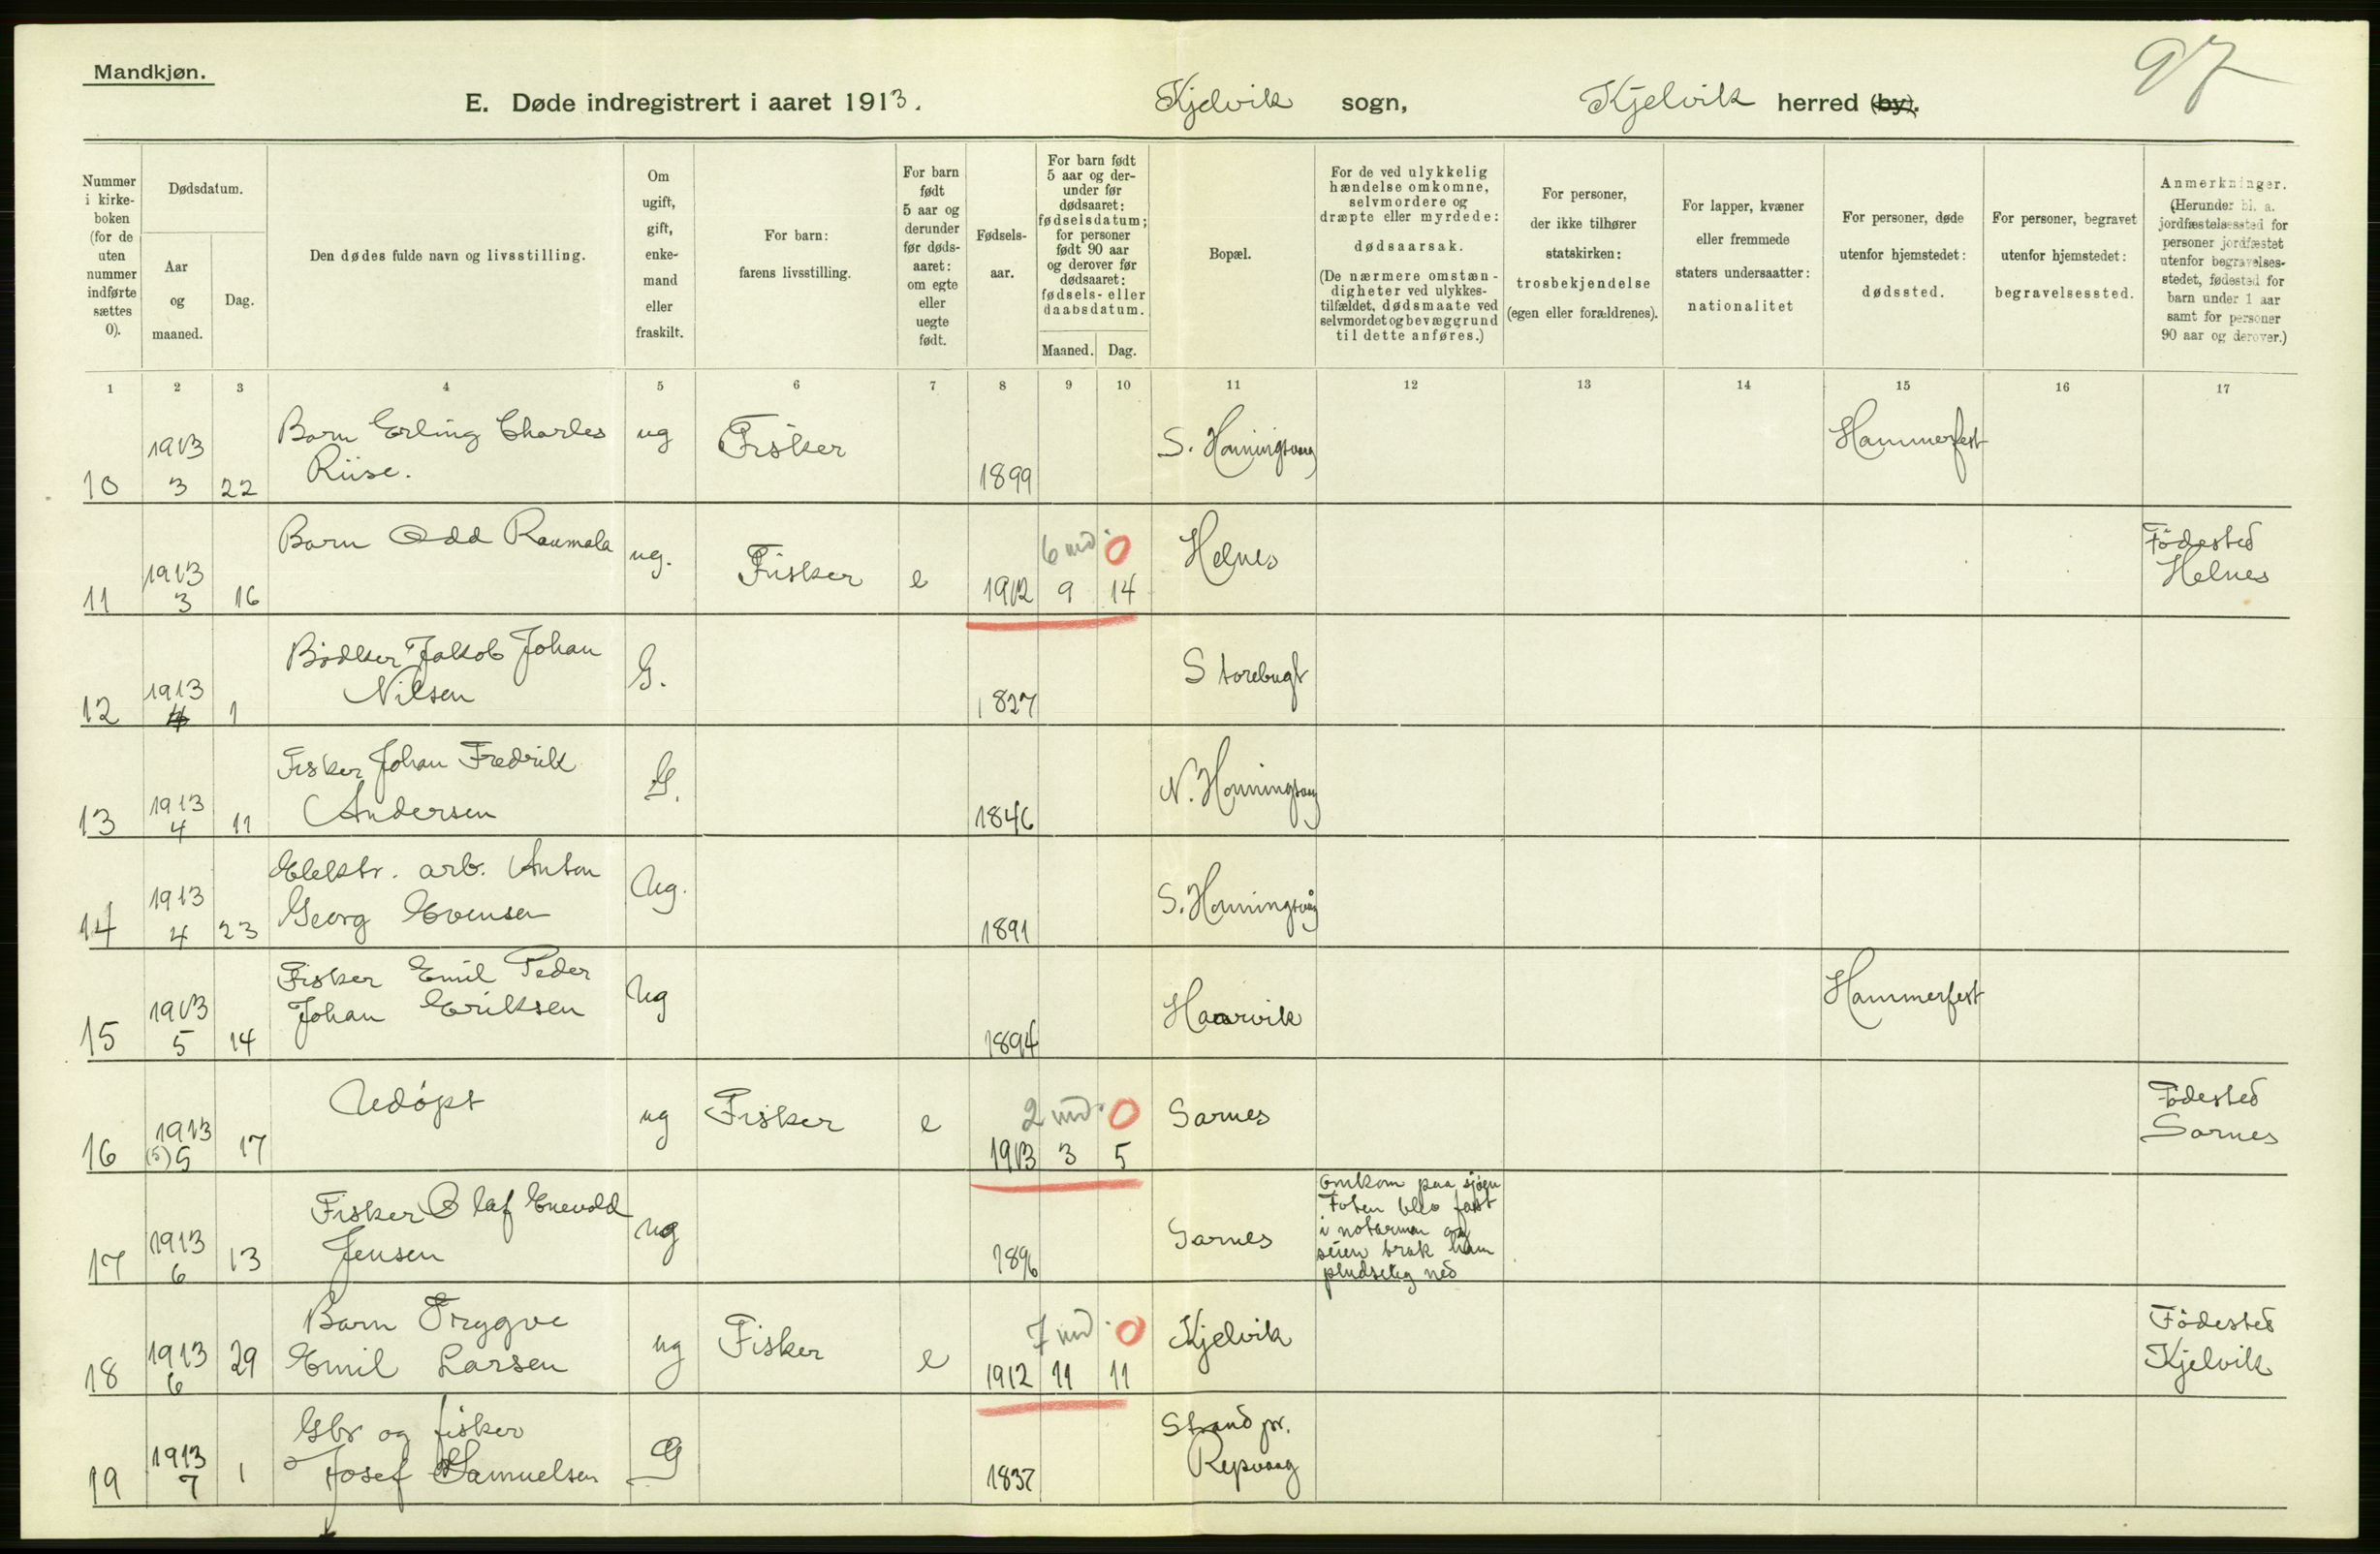 Mandkjøn.
97
E. Døde indregistrert i aaret 1913. Kjelvik sogn, Kjelvik herred (by).
Nummer i kirke-boken (for de uten nummer indførte sættes 0).
Dødsdatum.
Aar og maaned.
Dag.
Den dødes fulde navn og livsstilling.
Om ugift, gift, enke-mand eller fraskilt.
For barn: farens livsstilling.
For barn født 5 aar og derunder før døds-aaret: om egte eller uegte født.
Fødsels-aar.
For barn født 5 aar og der-under før dødsaaret: fødselsdatum; for personer født 90 aar og derover før dødsaaret: fødsels- eller daabsdatum.
Maaned. Dag.
Bopæl.
For de ved ulykkelig hændelse omkomne, selvmordere og dræpte eller myrdede: dødsaarsak. (De nærmere omstæn-digheter ved ulykkes-tilfældet, dødsmaate ved selvmordet og bevæggrund til dette anføres.)
For personer, der ikke tilhører statskirken: trosbekjendelse (egen eller forældrenes).
For lapper, kvæner eller fremmede staters undersaatter: nationalitet
For personer, døde utenfor hjemstedet: dødssted.
For personer, begravet utenfor hjemstedet: begravelsessted.
Anmerkninger. (Herunder bl. a. jordfæstelsessted for personer jordfæstet utenfor begravelses-stedet, fødested for barn under 1 aar samt for personer 90 aar og derover.)
1 2 3 4 5 6 7 8 9 10 11 12 13 14 15 16 17
10 1913 3 22 Barn Erling Charles Riise. ug Fisker 1899 S. Honningsvaag Hammerfest
11 1913 3 16 Barn Odd Raumala ug. Fisker e 1912 9 14 6 md. 0 Helnes Fødested Helnes
12 1913 4 1 Bødker Jakob Johan Nilsen G. 1827 Storebugt
13 1913 4 11 Fisker Johan Fredrik Andersen G. 1846 N. Honningsvaag
14 1913 4 23 Elektr. arb. Anton Georg Evensen Ug. 1891 S. Honningsvåg
15 1913 5 14 Fisker Emil Peder Johan Eriksen Ug 1894 Haarvik Hammerfest
16 1913 (5) 5 17 Udøpt ug Fisker e 1913 3 5 2 md. 0 Sarnes Fødested Sarnes
17 1913 6 13 Fisker Olaf Enevold Jensen ug 1896 Sarnes Omkom paa sjøen Foten blev fast i notarmen og seien trak ham pludselig ned
18 1913 6 29 Barn Trygve Emil Larsen ug Fisker e 1912 11 11 7 md. 0 Kjelvik Fødested Kjelvik
19 1913 7 1 Gbr og fisker Josef Samuelsen G 1837 Strand pr. Repvaag